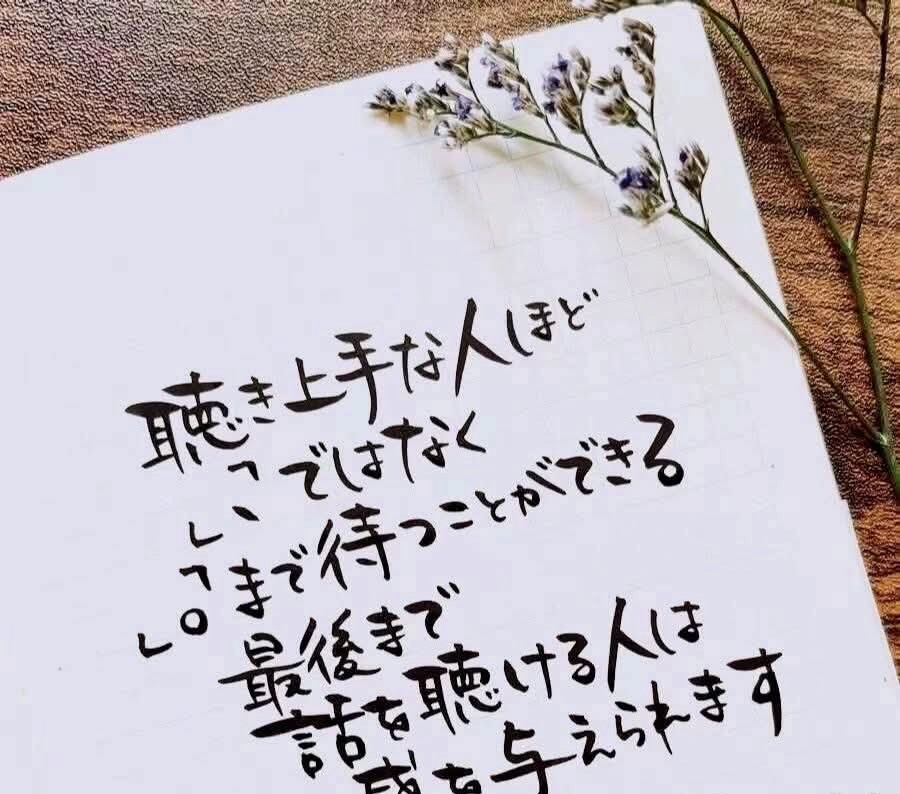 聴き上手な人ほど
「、」ではなく
「。」まで待つことができる
最後まで
話を聴ける人は
を与えられます